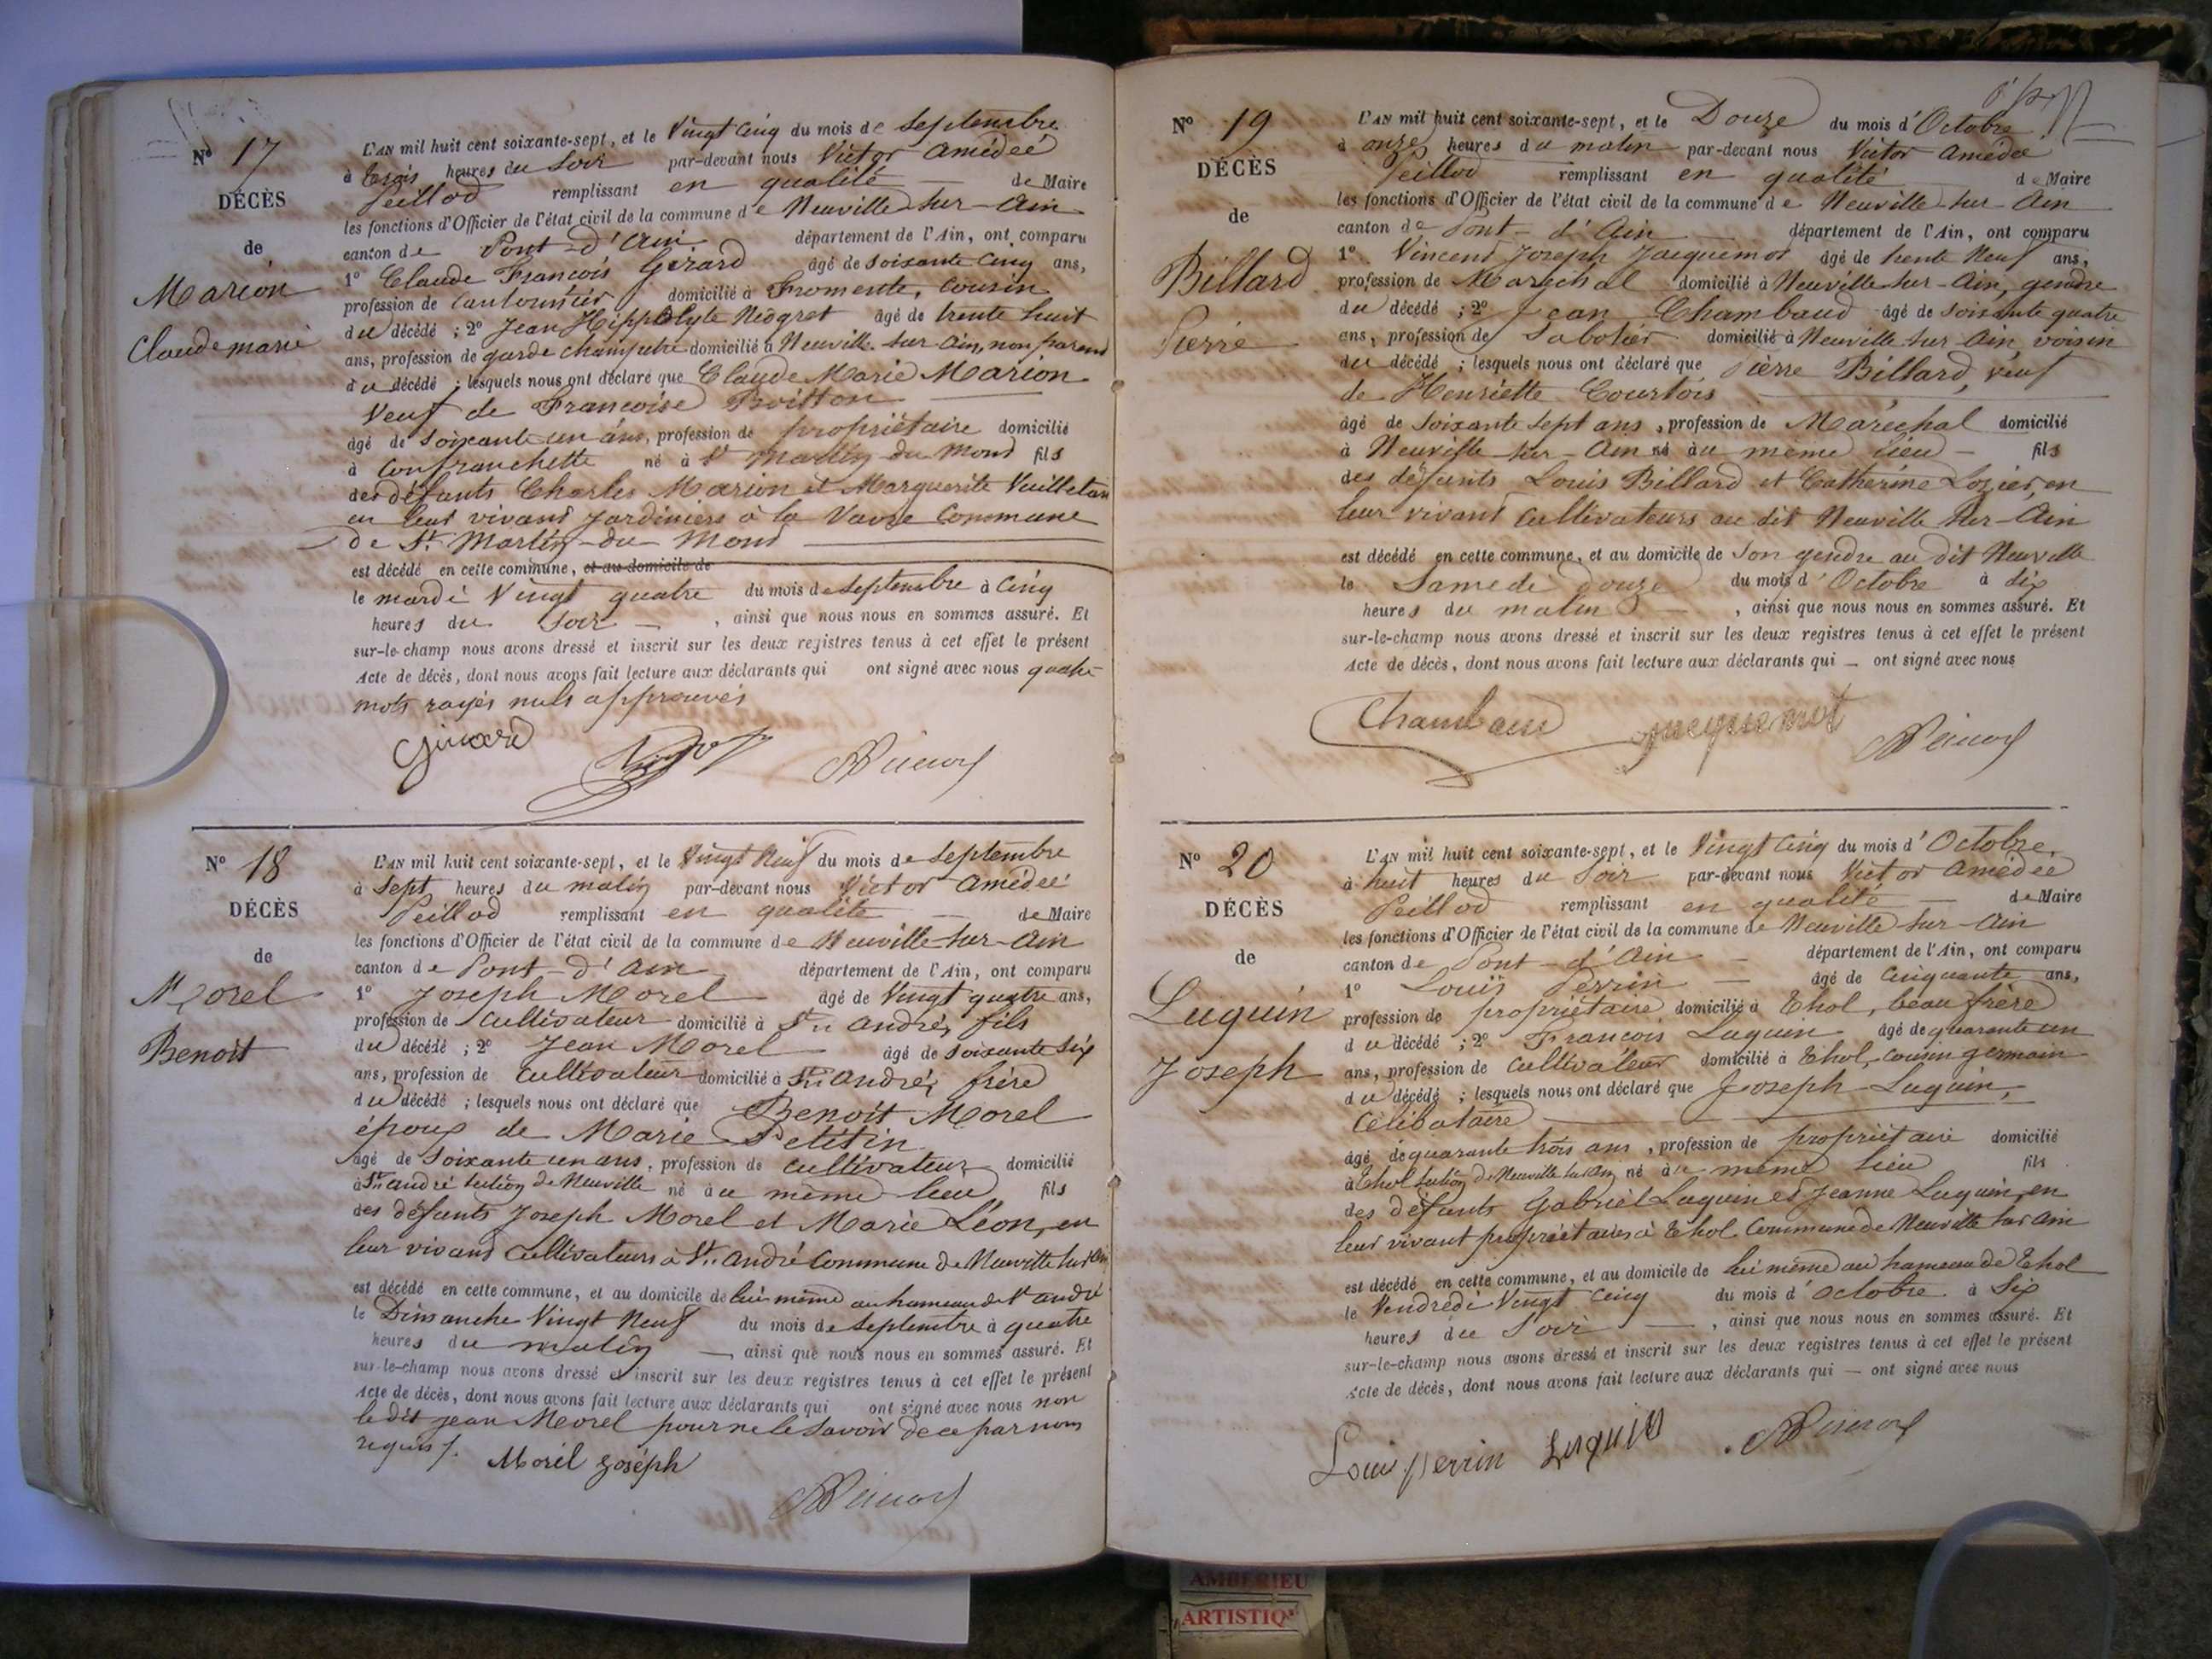 N° 17
DÉCÈS
de
Marion
Claude marie
L'AN mil huit cent soixante-sept, et le Vingt Cinq du mois de Septembre
à trois heures du Soir par-devant nous Victor Amédeé
Peillod remplissant en qualité de Maire
les fonctions d'Officier de l'état civil de la commune de Neuville-sur-Ain
canton de Pont-d'Ain département de l'Ain, ont comparu
1° Claude François Girard âgé de soixante Cinq ans,
profession de Cantonnier domicilié à Fromente, Cousin
du décédé ; 2° Jean Hippolyte Niogret âgé de trente huit
ans, profession de garde champêtre domicilié à Neuville-sur-Ain, non parent
du décédé ; lesquels nous ont déclaré que Claude Marie Marion
Veuf de Françoise
âgé de Soixante un ans, profession de propriétaire domicilié
à Confranchette né à St Martin du Mond fils
des défunts Charles Marion et Marguerite
en leur vivant Jardiniers à la Vavre Commune
de St Martin-du-Mont
est décédé en cette commune, et au domicile de
le mardi Vingt quatre du mois de Septembre à Cinq
heures du Soir , ainsi que nous nous en sommes assuré. Et
sur-le-champ nous avons dressé et inscrit sur les deux registres tenus à cet effet le présent
Acte de décès, dont nous avons fait lecture aux déclarants qui ont signé avec nous quatre
mots rayés nuls approuvés
Girard
N° 18
DÉCÈS
de
Morel
Benoit
L'AN mil huit cent soixante-sept, et le Vingt Neuf du mois de Septembre
à Sept heures du matin par-devant nous Victor Amédeé
Peillod remplissant en qualité de Maire
les fonctions d'Officier de l'état civil de la commune de Neuville-sur-Ain
canton de Pont-d'Ain département de l'Ain, ont comparu
1° Joseph Morel âgé de Vingt quatre ans,
profession de Cultivateur domicilié à St André, fils
du décédé ; 2° Jean Morel âgé de soixante six
ans, profession de Cultivateur domicilié à St André, frère
du décédé ; lesquels nous ont déclaré que Benoit Morel
époux de Marie Petitin
âgé de Soixante un ans, profession de Cultivateur domicilié
à St André section de Neuville né au même lieu fils
des défunts Joseph Morel et Marie Léon, en
leur vivant Cultivateurs à St André Commune de Neuville sur Ain
est décédé en cette commune, et au domicile de lui même au hameau de St André
le Dimanche Vingt Neuf du mois de Septembre à quatre
heures du matin ainsi que nous nous en sommes assuré. Et
sur-le-champ nous avons dressé et inscrit sur les deux registres tenus à cet effet le présent
Acte de décès, dont nous avons fait lecture aux déclarants qui ont signé avec nous non
le dit Jean Morel pour ne le savoir de ce par nous
requis.
Morel Joseph
N° 19
DÉCÈS
de
Billard
Pierre
L'AN mil huit cent soixante-sept, et le Douze du mois d'Octobre
à onze heures du matin par-devant nous Victor Amédeé
Peillod remplissant en qualité de Maire
les fonctions d'Officier de l'état civil de la commune de Neuville-sur-Ain
canton de Pont-d'Ain département de l'Ain, ont comparu
1° Vincent Joseph Jacquemot âgé de trente Neuf ans,
profession de Maréchal domicilié à Neuville-sur-Ain, gendre
du décédé ; 2° Jean Chambaud âgé de soixante quatre
ans, profession de Sabotier domicilié à Neuville sur Ain, voisin
du décédé ; lesquels nous ont déclaré que Pierre Billard, veuf
de Henriette Courtois
âgé de soixante sept ans, profession de Maréchal domicilié
à Neuville-sur-Ain né au même lieu fils
des défunts Louis Billard et Catherine Lozier, en
leur vivant Cultivateurs au dit Neuville sur-Ain
est décédé en cette commune, et au domicile de son gendre au dit Neuville
le Samedi douze du mois d'Octobre à Six
heures du matin , ainsi que nous nous en sommes assuré. Et
sur-le-champ nous avons dressé et inscrit sur les deux registres tenus à cet effet le présent
Acte de décès, dont nous avons fait lecture aux déclarants qui — ont signé avec nous
Chambaud Jacquemot
N° 20
DÉCÈS
de
Luquin
Joseph
L'AN mil huit cent soixante-sept, et le Vingt Cinq du mois d'Octobre
à huit heures du Soir par-devant nous Victor Amédeé
Peillod remplissant en qualité de Maire
les fonctions d'Officier de l'état civil de la commune de Neuville-sur-Ain
canton de Pont-d'Ain département de l'Ain, ont comparu
1° Louis Perrin âgé de Cinquante ans,
profession de propriétaire domicilié à Thol, beau frère
du décédé ; 2° François Luquin âgé de quarante un
ans, profession de Cultivateur domicilié à Thol, cousin germain
du décédé ; lesquels nous ont déclaré que Joseph Luquin,
Célibataire
âgé de quarante trois ans, profession de propriétaire domicilié
à Thol section de Neuville sur Ain né au même lieu fils
des défunts Gabriel Luquin et Jeanne Luquin, en
leur vivant propriétaires à Thol Commune de Neuville sur Ain
est décédé en cette commune, et au domicile de lui même au hameau de Thol
le Vendredi Vingt Cinq du mois d'Octobre à Six
heures du Soir , ainsi que nous nous en sommes assuré. Et
sur-le-champ nous avons dressé et inscrit sur les deux registres tenus à cet effet le présent
Acte de décès, dont nous avons fait lecture aux déclarants qui — ont signé avec nous
Louis perrin Luquin
AMBERIEU
ARTISTIQ